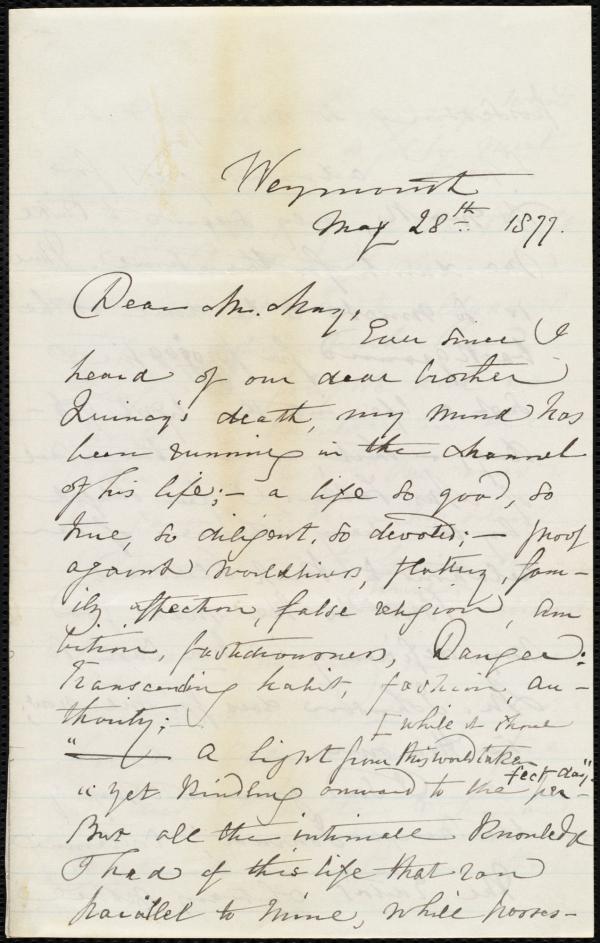 Weymouth
May 28th 1877.
Dear Mr. May,
Ever since I
heard of our dear brother
Quincy's death, my mind has
been running in the channel
of his life;- a life so good, so
true, so diligent, so devoted;- proof
against worldliness, flattery, fam-
ily affection, false religion, am
bition, fastidiousness, Danger:
Transcending habit, fashion, au-
thority;-
[while it shone
"—— A light from this world taken
" yet kindling onward to the per-
fect day".
But all the intimate knowledge
I had of this life that ran
parallel to mine, while posses-